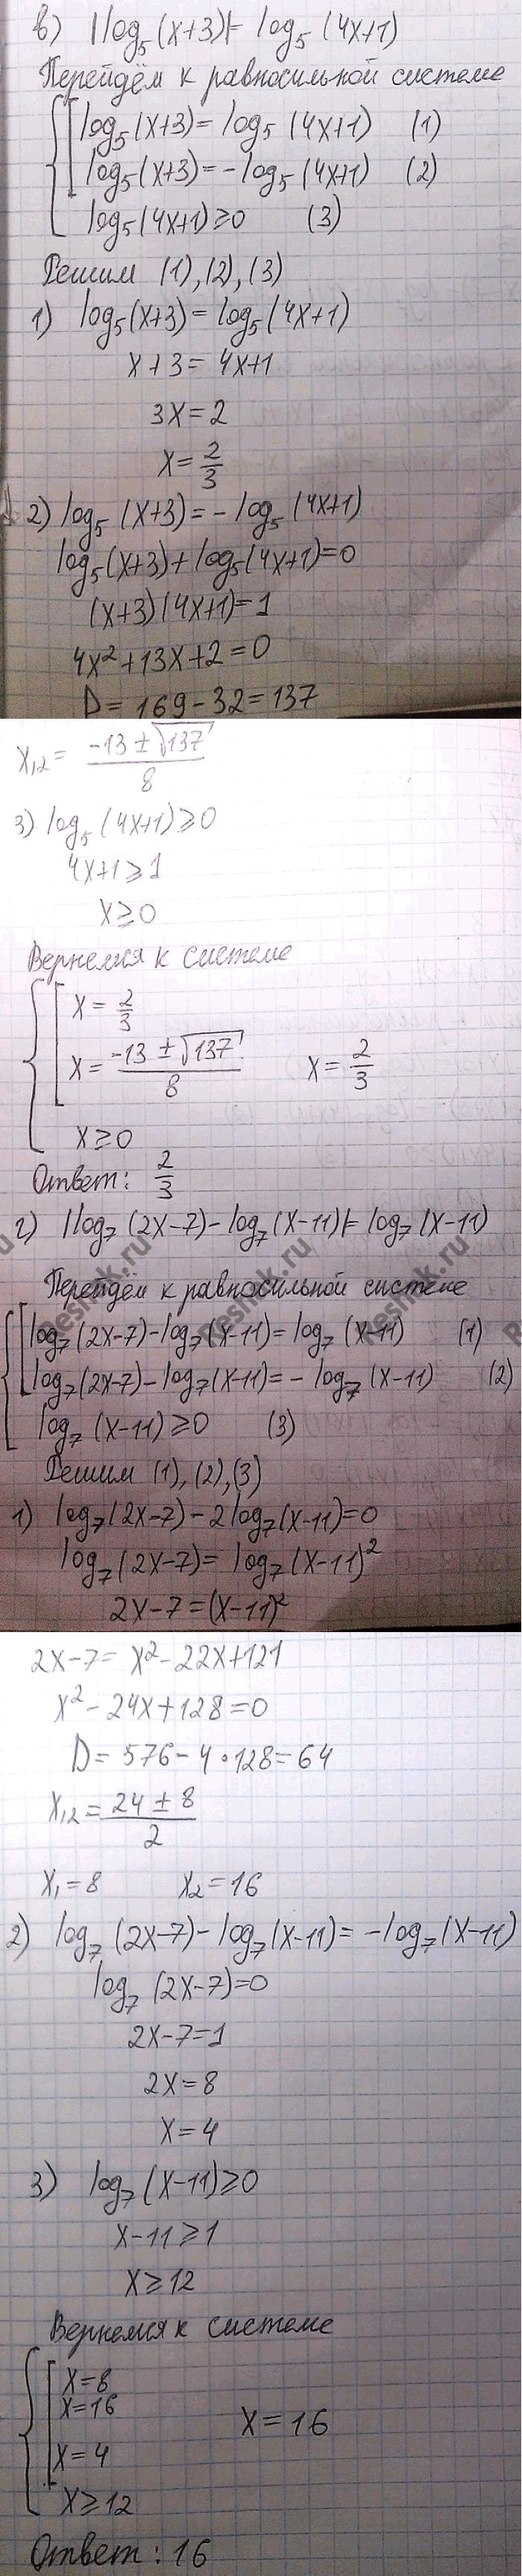 в) |log₅(x+3)|= log₅(4x+1)
Перейдём к равносильной системе
log₅(x+3)= log₅(4x+1) (1)
log₅(x+3)=-log₅(4x+1) (2)
log₅(4x+1)≥0 (3)
Решим (1),(2),(3)
1) log₅(x+3)=log₅(4x+1)
x+3= 4x+1
3x=2
x= 2/3
2) log₅(x+3)=-log₅(4x+1)
log₅(x+3)+log₅(4x+1)=0
(x+3)(4x+1)=1
4x²+13x+2=0
D= 169-32=137
x₁,₂= (-13±√137)/8
3) log₅(4x+1)≥0
4x+1≥1
x≥0
Вернемся к системе
x= 2/3
x= (-13±√137)/8 x= 2/3
x≥0
Ответ: 2/3
г) |log₇(2x-7)-log₇(x-11)|= log₇(x-11)
Перейдём к равносильной системе
log₇(2x-7)-log₇(x-11)=log₇(x-11) (1)
log₇(2x-7)-log₇(x-11)=- log₇(x-11) (2)
log₇(x-11)≥0 (3)
Решим (1),(2),(3)
1) log₇(2x-7)-2log₇(x-11)=0
log₇(2x-7)= log₇(x-11)²
2x-7=(x-11)²
2x-7= x²-22x+121
x²-24x+128=0
D= 576-4·128=64
x₁,₂= (24±8)/2
x₁=8 x₂=16
2) log₇(2x-7)-log₇(x-11)= -log₇(x-11)
log₇(2x-7)=0
2x-7=1
2x=8
x=4
3) log₇(x-11)≥0
x-11≥1
x≥12
Вернемся к системе
x=8
x=16 x=16
x=4
x≥12
Ответ: 16